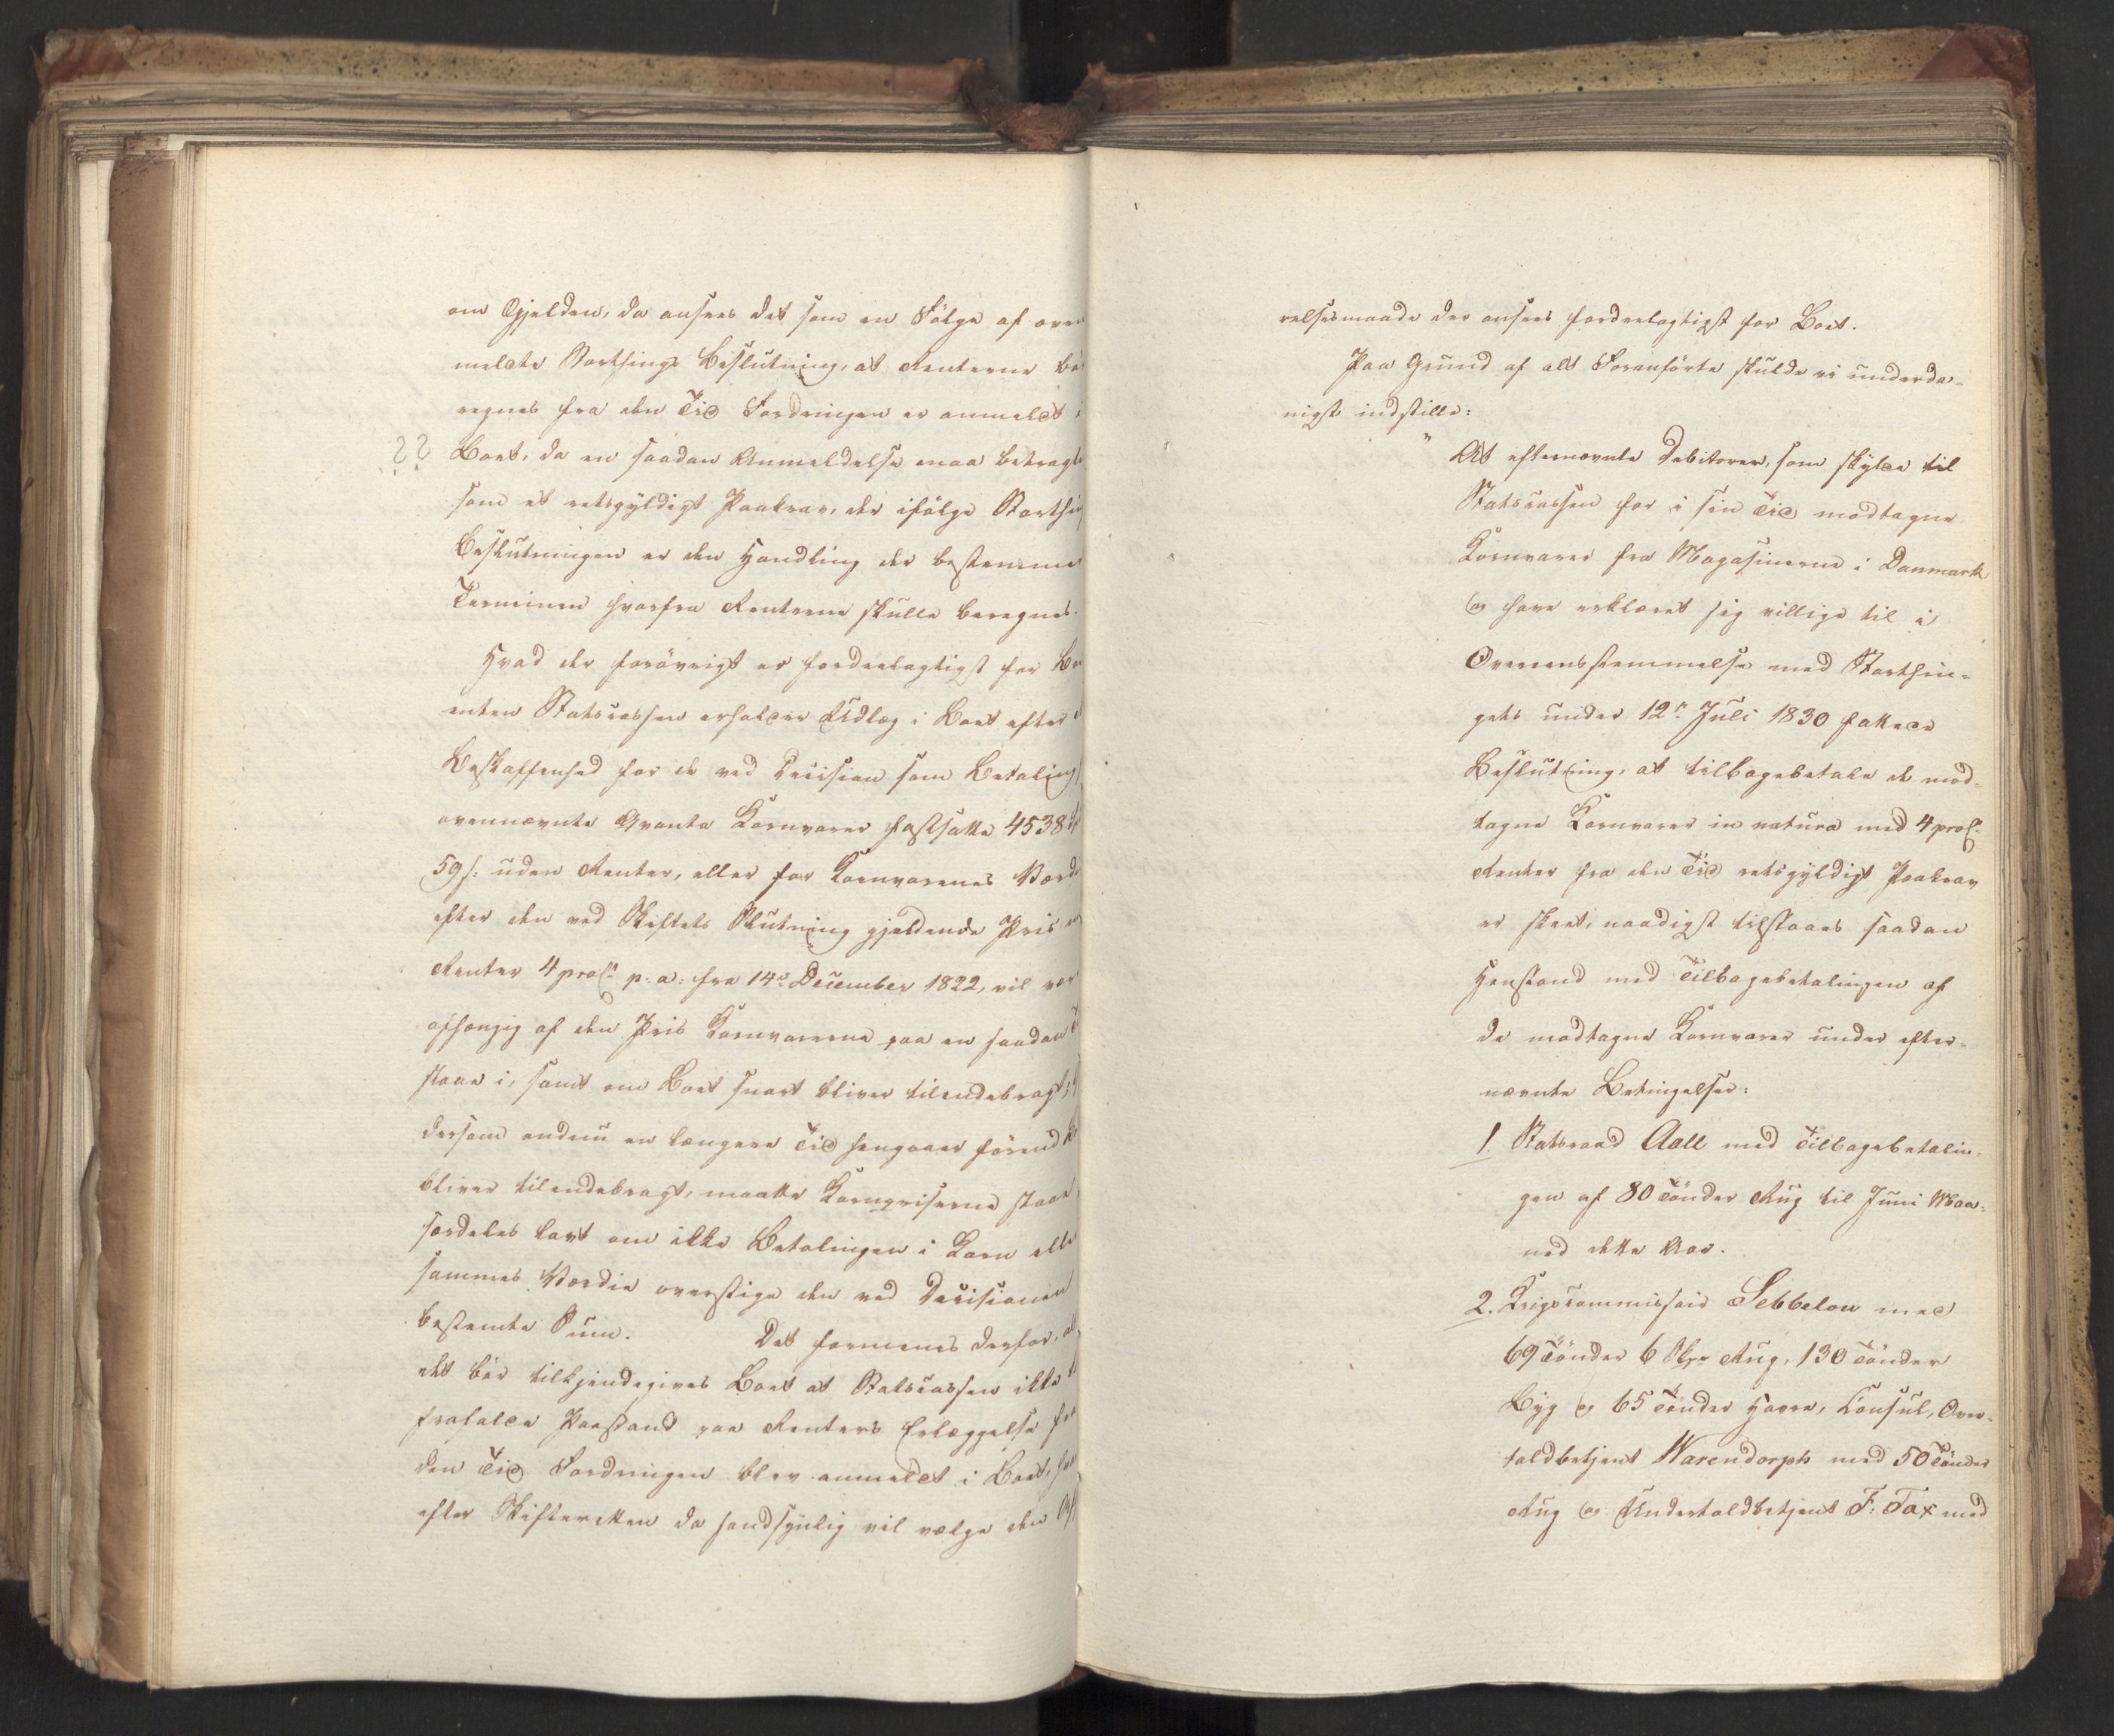 om Gjelden, da ansees det som en Følge af oven
meldte Storthings Beslutning, at Renterne bö
regnes fra den Tid Fordringen er anmeldt i
?? Boet, da en saadan Anmeldelse maa betragte
som et retsgyldigt Paakrav, der ifölge Storthin
Beslutningen er den Handling der bestemme
Terminen hvorfra Renterne skulle beregnes.
Hvad der forövrigt er fordeelagtigst for Bo
enten Statscassen erholder Udlæg i Boet efter
Beskaffenhed for de ved Decision som Betaling
ovennævnte Qvanta Kornvarer fastsatte 4538
59 s: uden Renter, eller for Kornvarenes Værdi
efter den ved Skiftets Slutning gjeldende Priis
Renter 4 proCt p. a: fra 14de December 1822, vil vær
afhængig af den Priis Kornvarerne paa en saadan
staae i, samt om Boet snart bliver tilendebragt;
dersom endnu en længere Tid hengaaer förend
bliver tilendebragt, maatte Kornpriserne staae
særdeles lavt om ikke Betalingen i Korn elle
sammes Værdie overstige den ved Decisionen
bestemte Sum. Det formenes derfor, at
det bör tilkjendegives Boet at Statscassen ikke
frafalde Paastand paa Renters Erlæggelse fra
den Tid Fordringen blev anmeldt i Boet,
efter Skifteretten da sandsynlig vil vælge den
relsesmaade der ansees fordeelagtigst for Boet.
Paa Grund af alt Foranförte skulde vi underda-
nigst indstille:
" At efternævnte Debitorer, som skylde til
Statscassen for i sin Tid modtagne
Kornvarer fra Magasinerne i Danmark
og have erklæret sig villige til i
Overeensstemmelse med Storthin-
gets under 12te Juli 1830 fattede
Beslutning, at tilbagebetale de mod-
tagne Kornvarer in natura med 4 proCt
Renter fra den Tid retsgyldigt Paakrav
er skeet, naadigst tilstaaes saadan
Henstand med Tilbagebetalingen af
de modtagne Kornvarer under efter-
nævnte Betingelser:
1. Statsraad Aall med Tilbagebetalin-
gen af 80 Tönder Rug til Juni Maa-
ned dette Aar.
2. Krigscommissair Sebbelow med
69 Tönder 6 Skpr Rug, 130 Tönder
Byg og 65 Tönder Havre, Consul, Over-
toldbetjent Warendorph med 50 Tönder
Rug og Undertoldbetjent F. Fax med